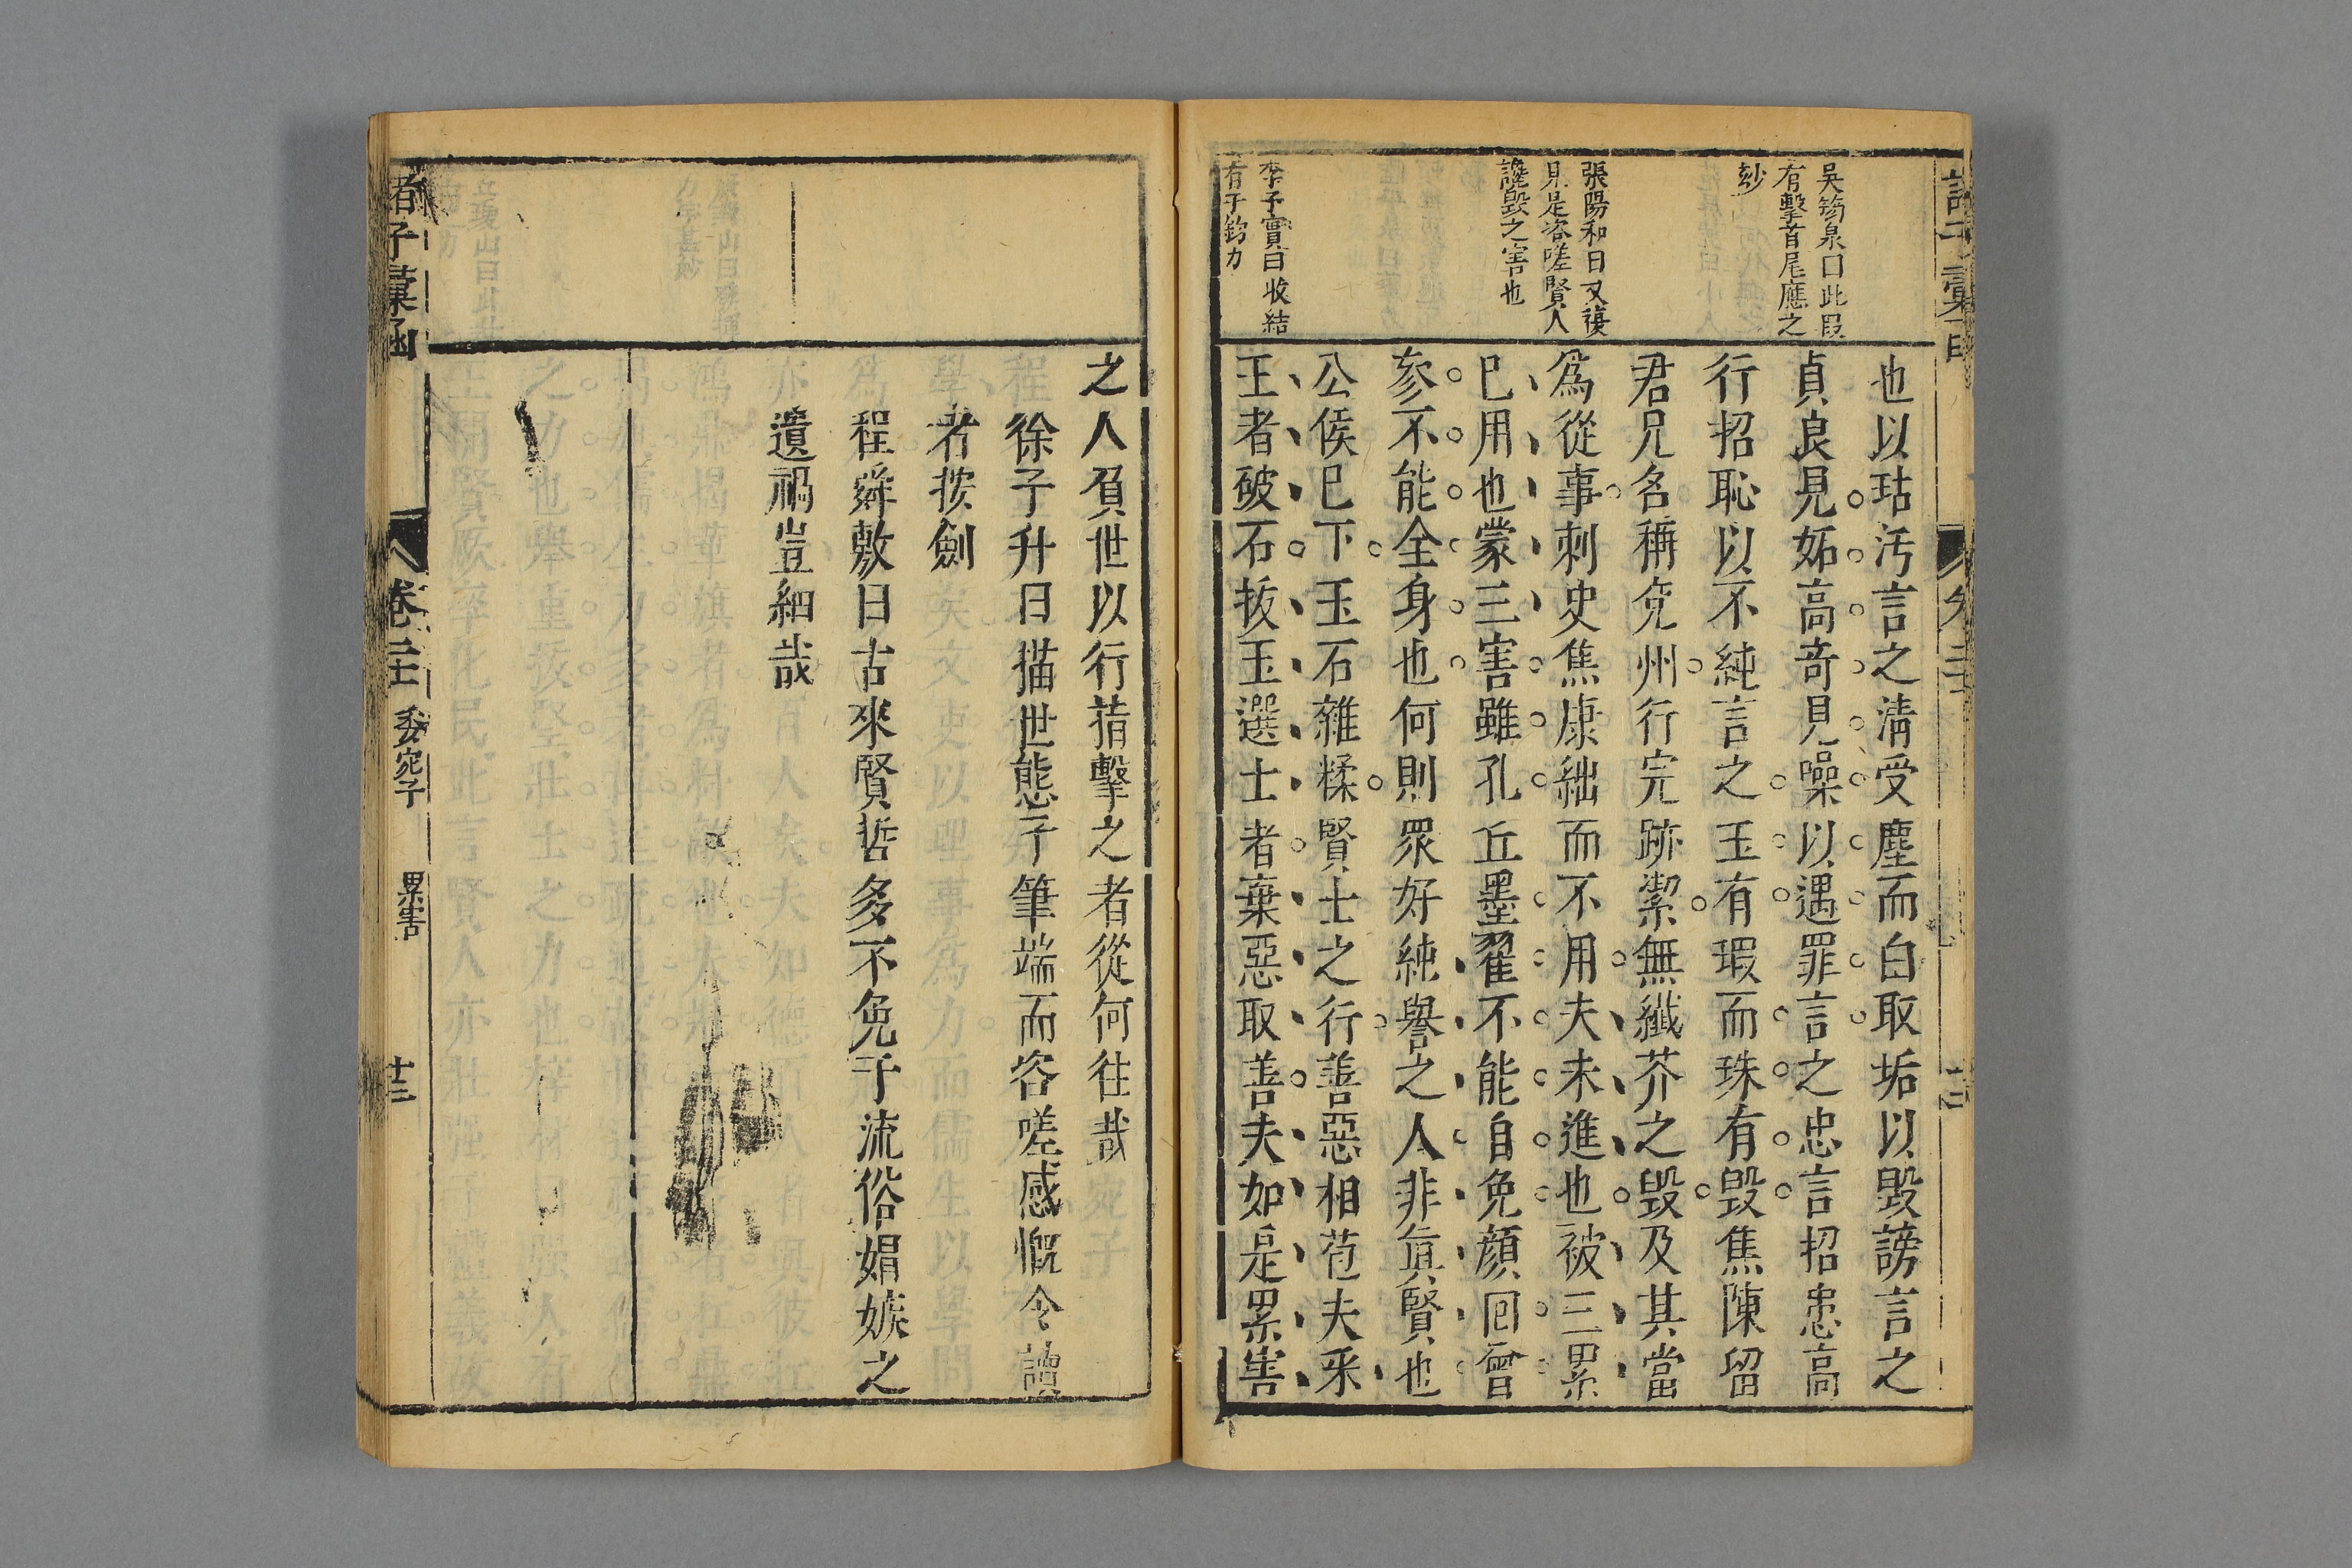 吳筠泉曰此段
有擊首尾應之
妙
張陽和曰又復
見是咨嗟賢人
讒毀之害也
李子實曰收結
有千鈞力
也以玷汚言之淸受塵而白取垢以毀謗言之
貞良見妬高奇見噪以遇罪言之忠言招患高
行招恥以不純言之玉有瑕而珠有毀焦陳留
君兄名稱兗州行完跡潔無纖芥之毀及其當
爲從事刺史焦康絀而不用夫未進也被三累
已用也蒙三害雖孔丘墨翟不能自免顏回曾
參不能全身也何則眾好純譽之人非眞賢也
公侯已下玉石雜糅賢士之行善惡相苞夫采
玉者破石拔玉選士者棄惡取善夫如是累害
之人負世以行指擊之者從何往哉
徐子升曰描世態于筆端而咨嗟感慨令讀
者按劍
程舜敷曰古來賢哲多不免于流俗娟嫉之
遺禍豈細哉
諸子彙函
卷二十
委宛子
累害
十三